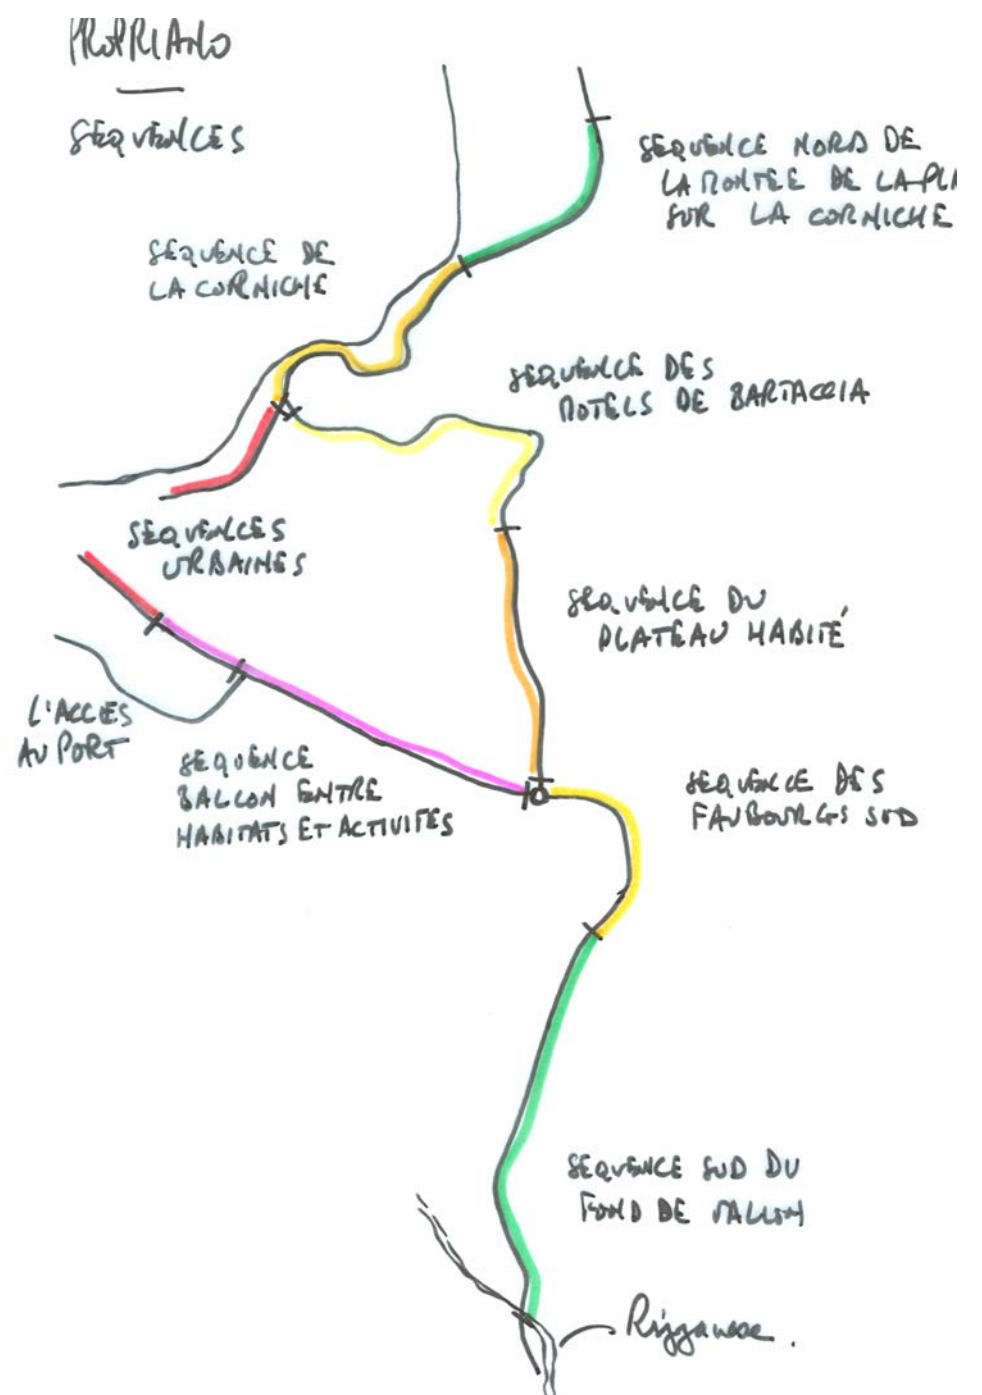 PROPRIANO
SEQUENCES
SEQUENCE NORD DE
LA MONTEE DE LA PLA
SUR LA CORNICHE
SEQUENCE DE
LA CORNICHE
SEQUENCE DES
MOTELS DE BARTACCIA
SEQUENCES
URBAINES
SEQUENCE DU
PLATEAU HABITÉ
L'ACCES
AU PORT
SEQUENCE
BALCON ENTRE
HABITATS ET ACTIVITES
SEQUENCE DES
FAUBOURGS SUD
SEQUENCE SUD DU
FOND DE VALLON
Rizzanese.